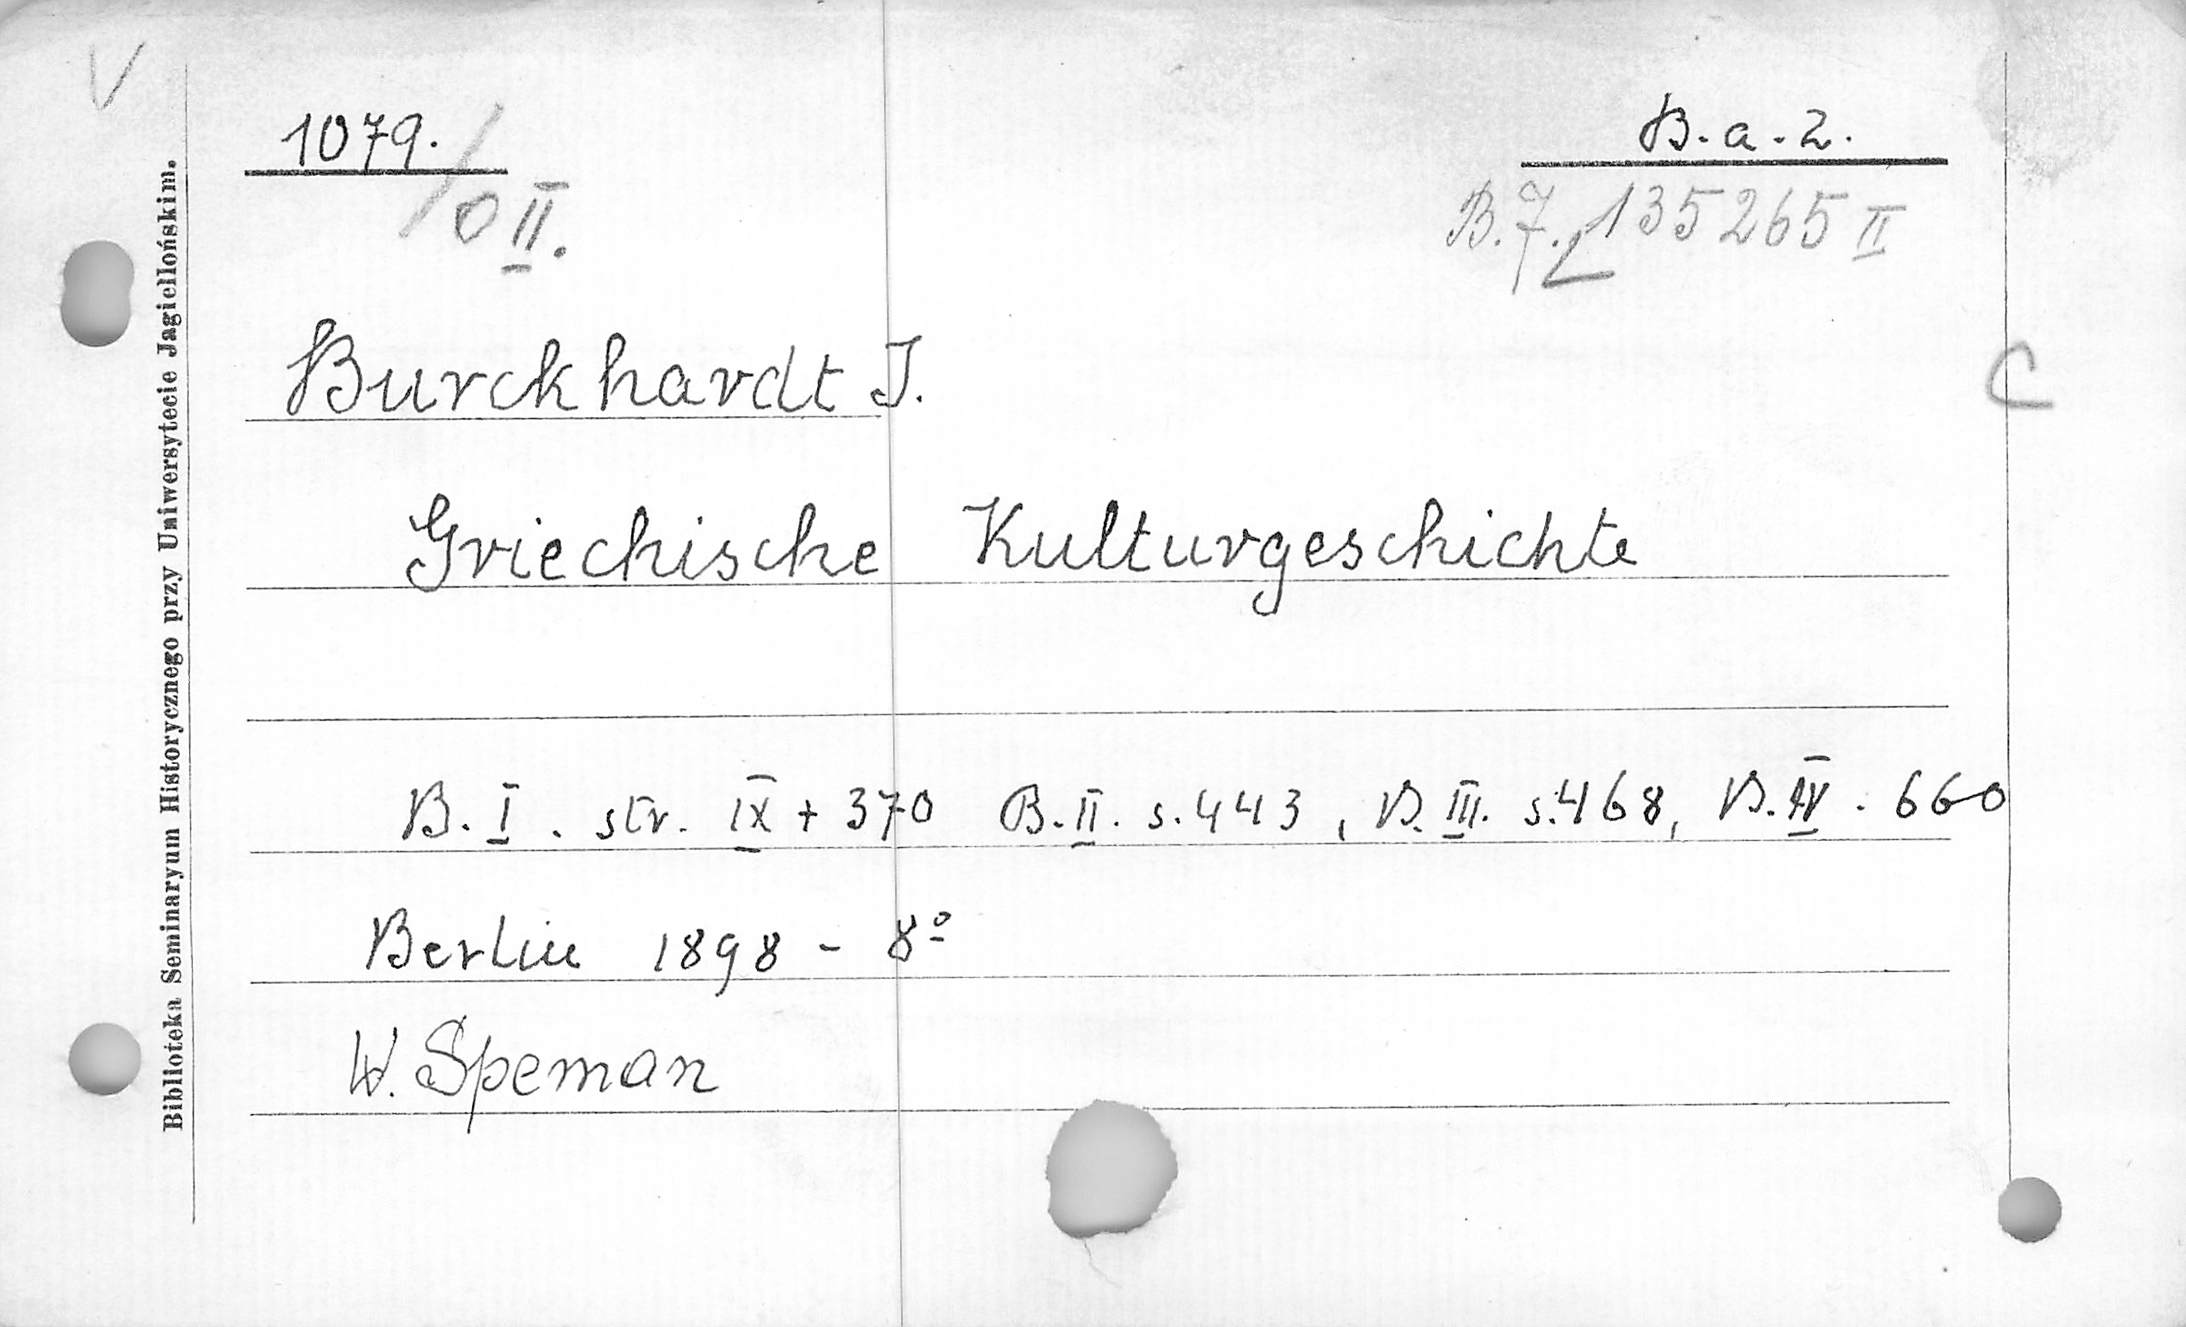 V
1079.
/O II.
B.a.2.
B.7. 135265 II
C
Burckhardt J.
Griechische Kulturgeschichte
B. I. str. IX + 370 B. II. s. 443, B. III. s. 468, B. IV. 660
Berlin 1898 - 8º
W. Speman
Biblioteka Seminaryum Historycznego przy Uniwersytecie Jagiellońskim.